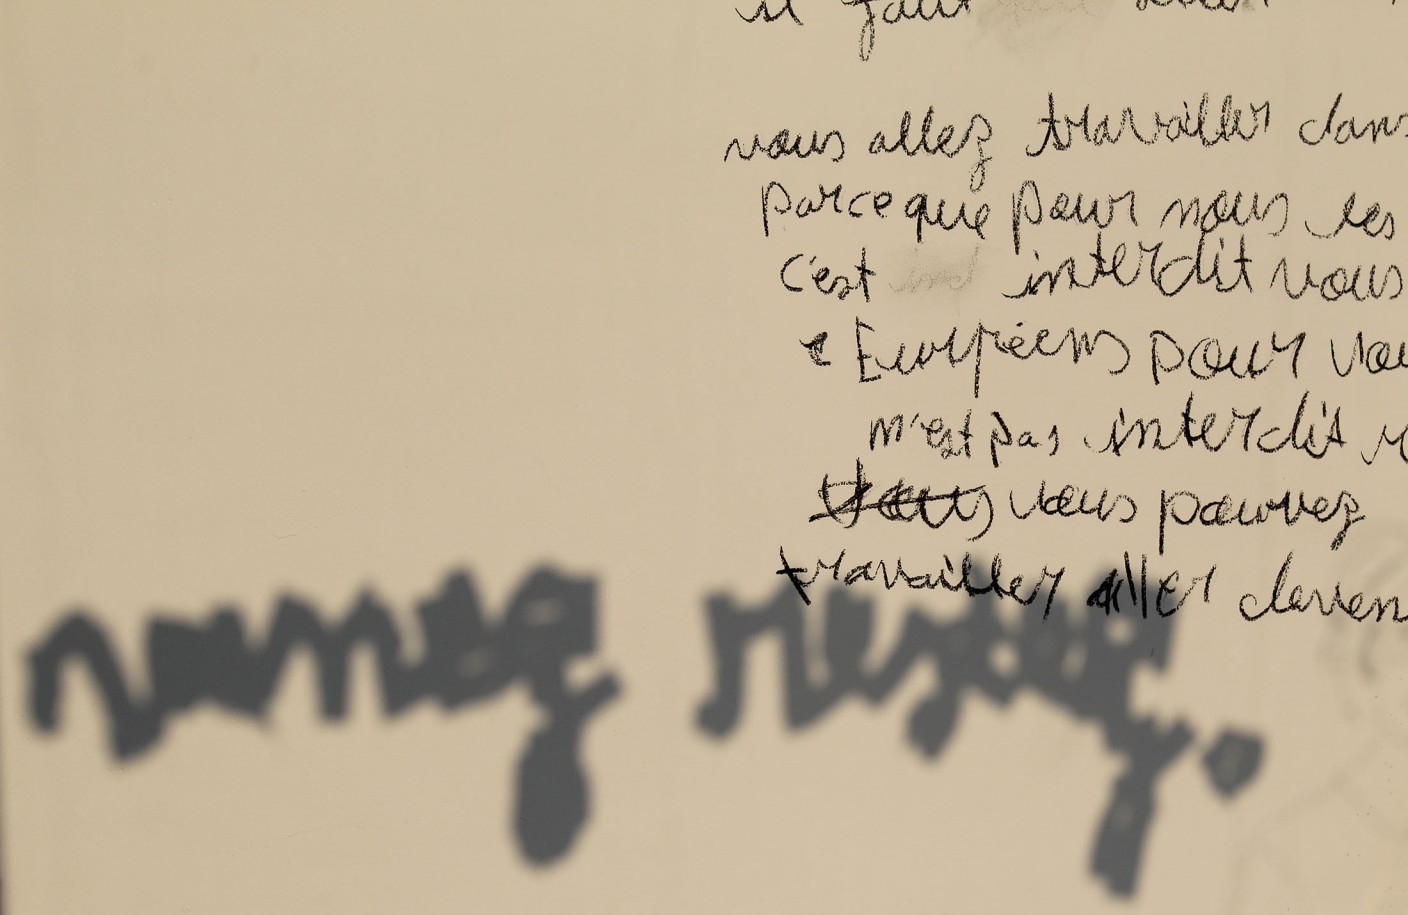 il faut
vous allez travailler dans
parce que pour nous les
c'est interdit vous
Eurpéens pour vou
n'est pas interdit
vous pouvez
travailler aller daven
venez restez.